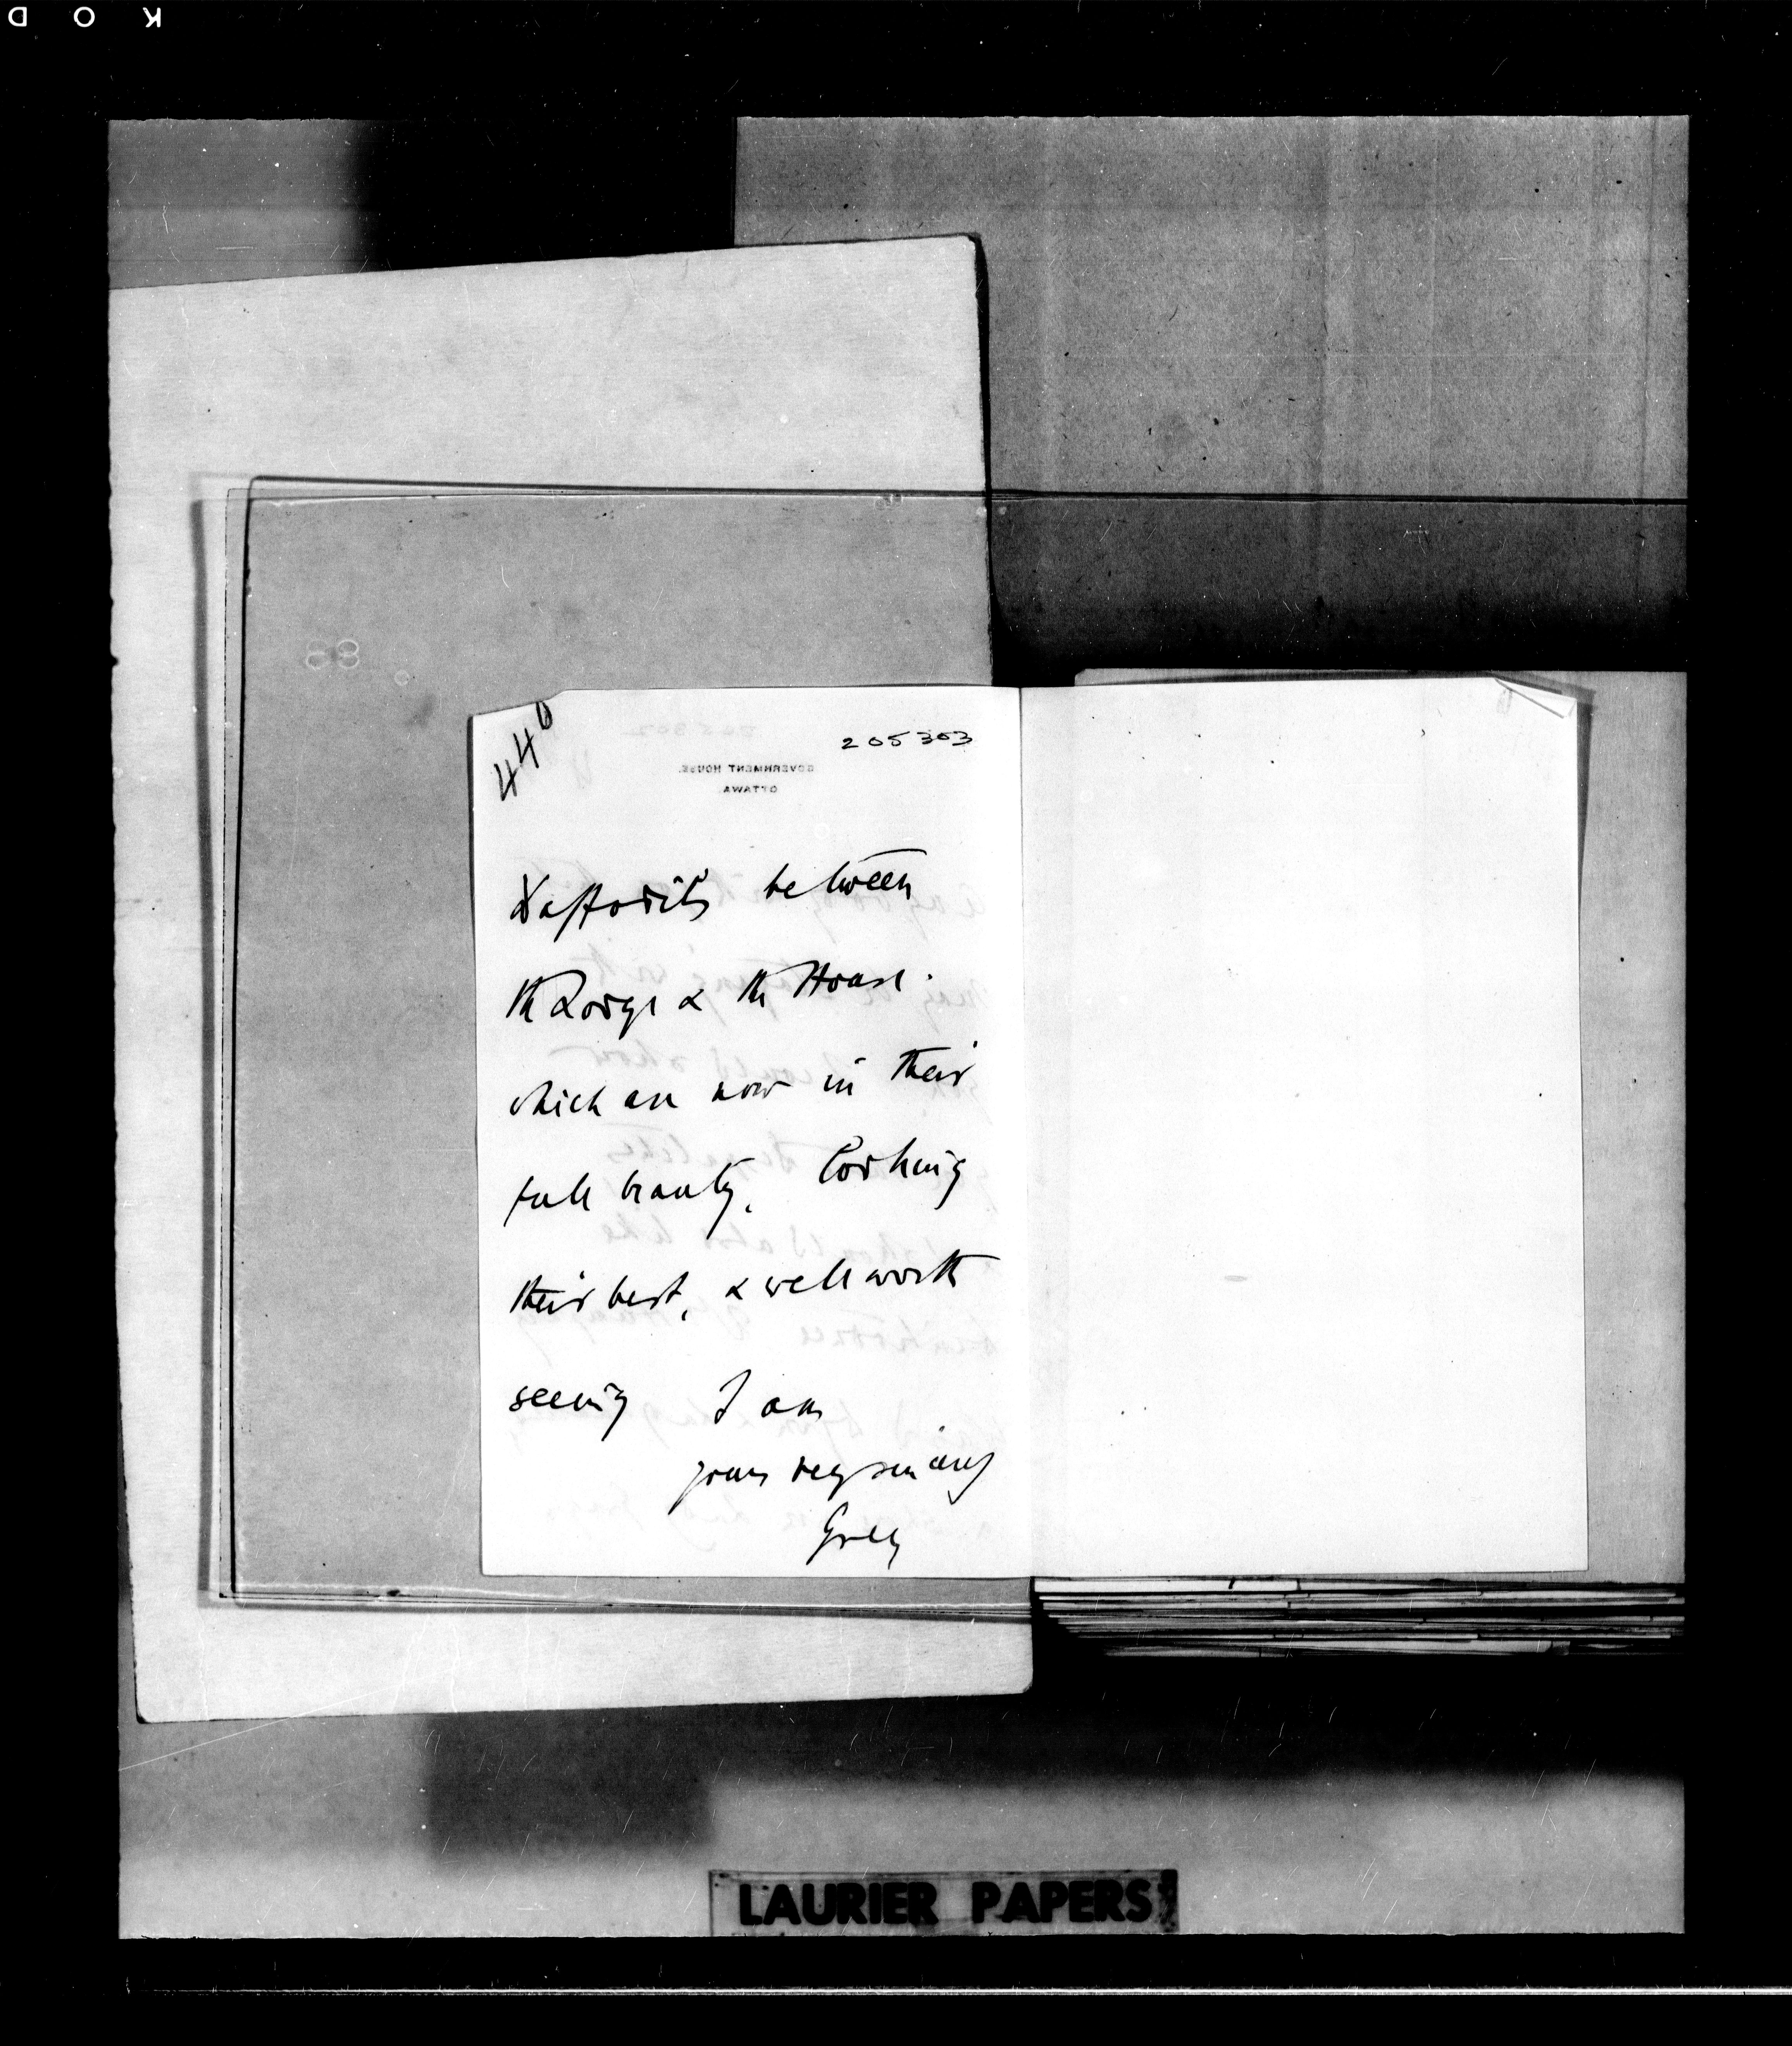 K O D
440
205303
GOVERNMENT HOUSE.
OTTAWA
Daffodils between
the Lodge & the House.
which are now in their
full beauty. Looking
their best, & well worth
seeing I am
yours very sincerely
Grey
LAURIER PAPERS